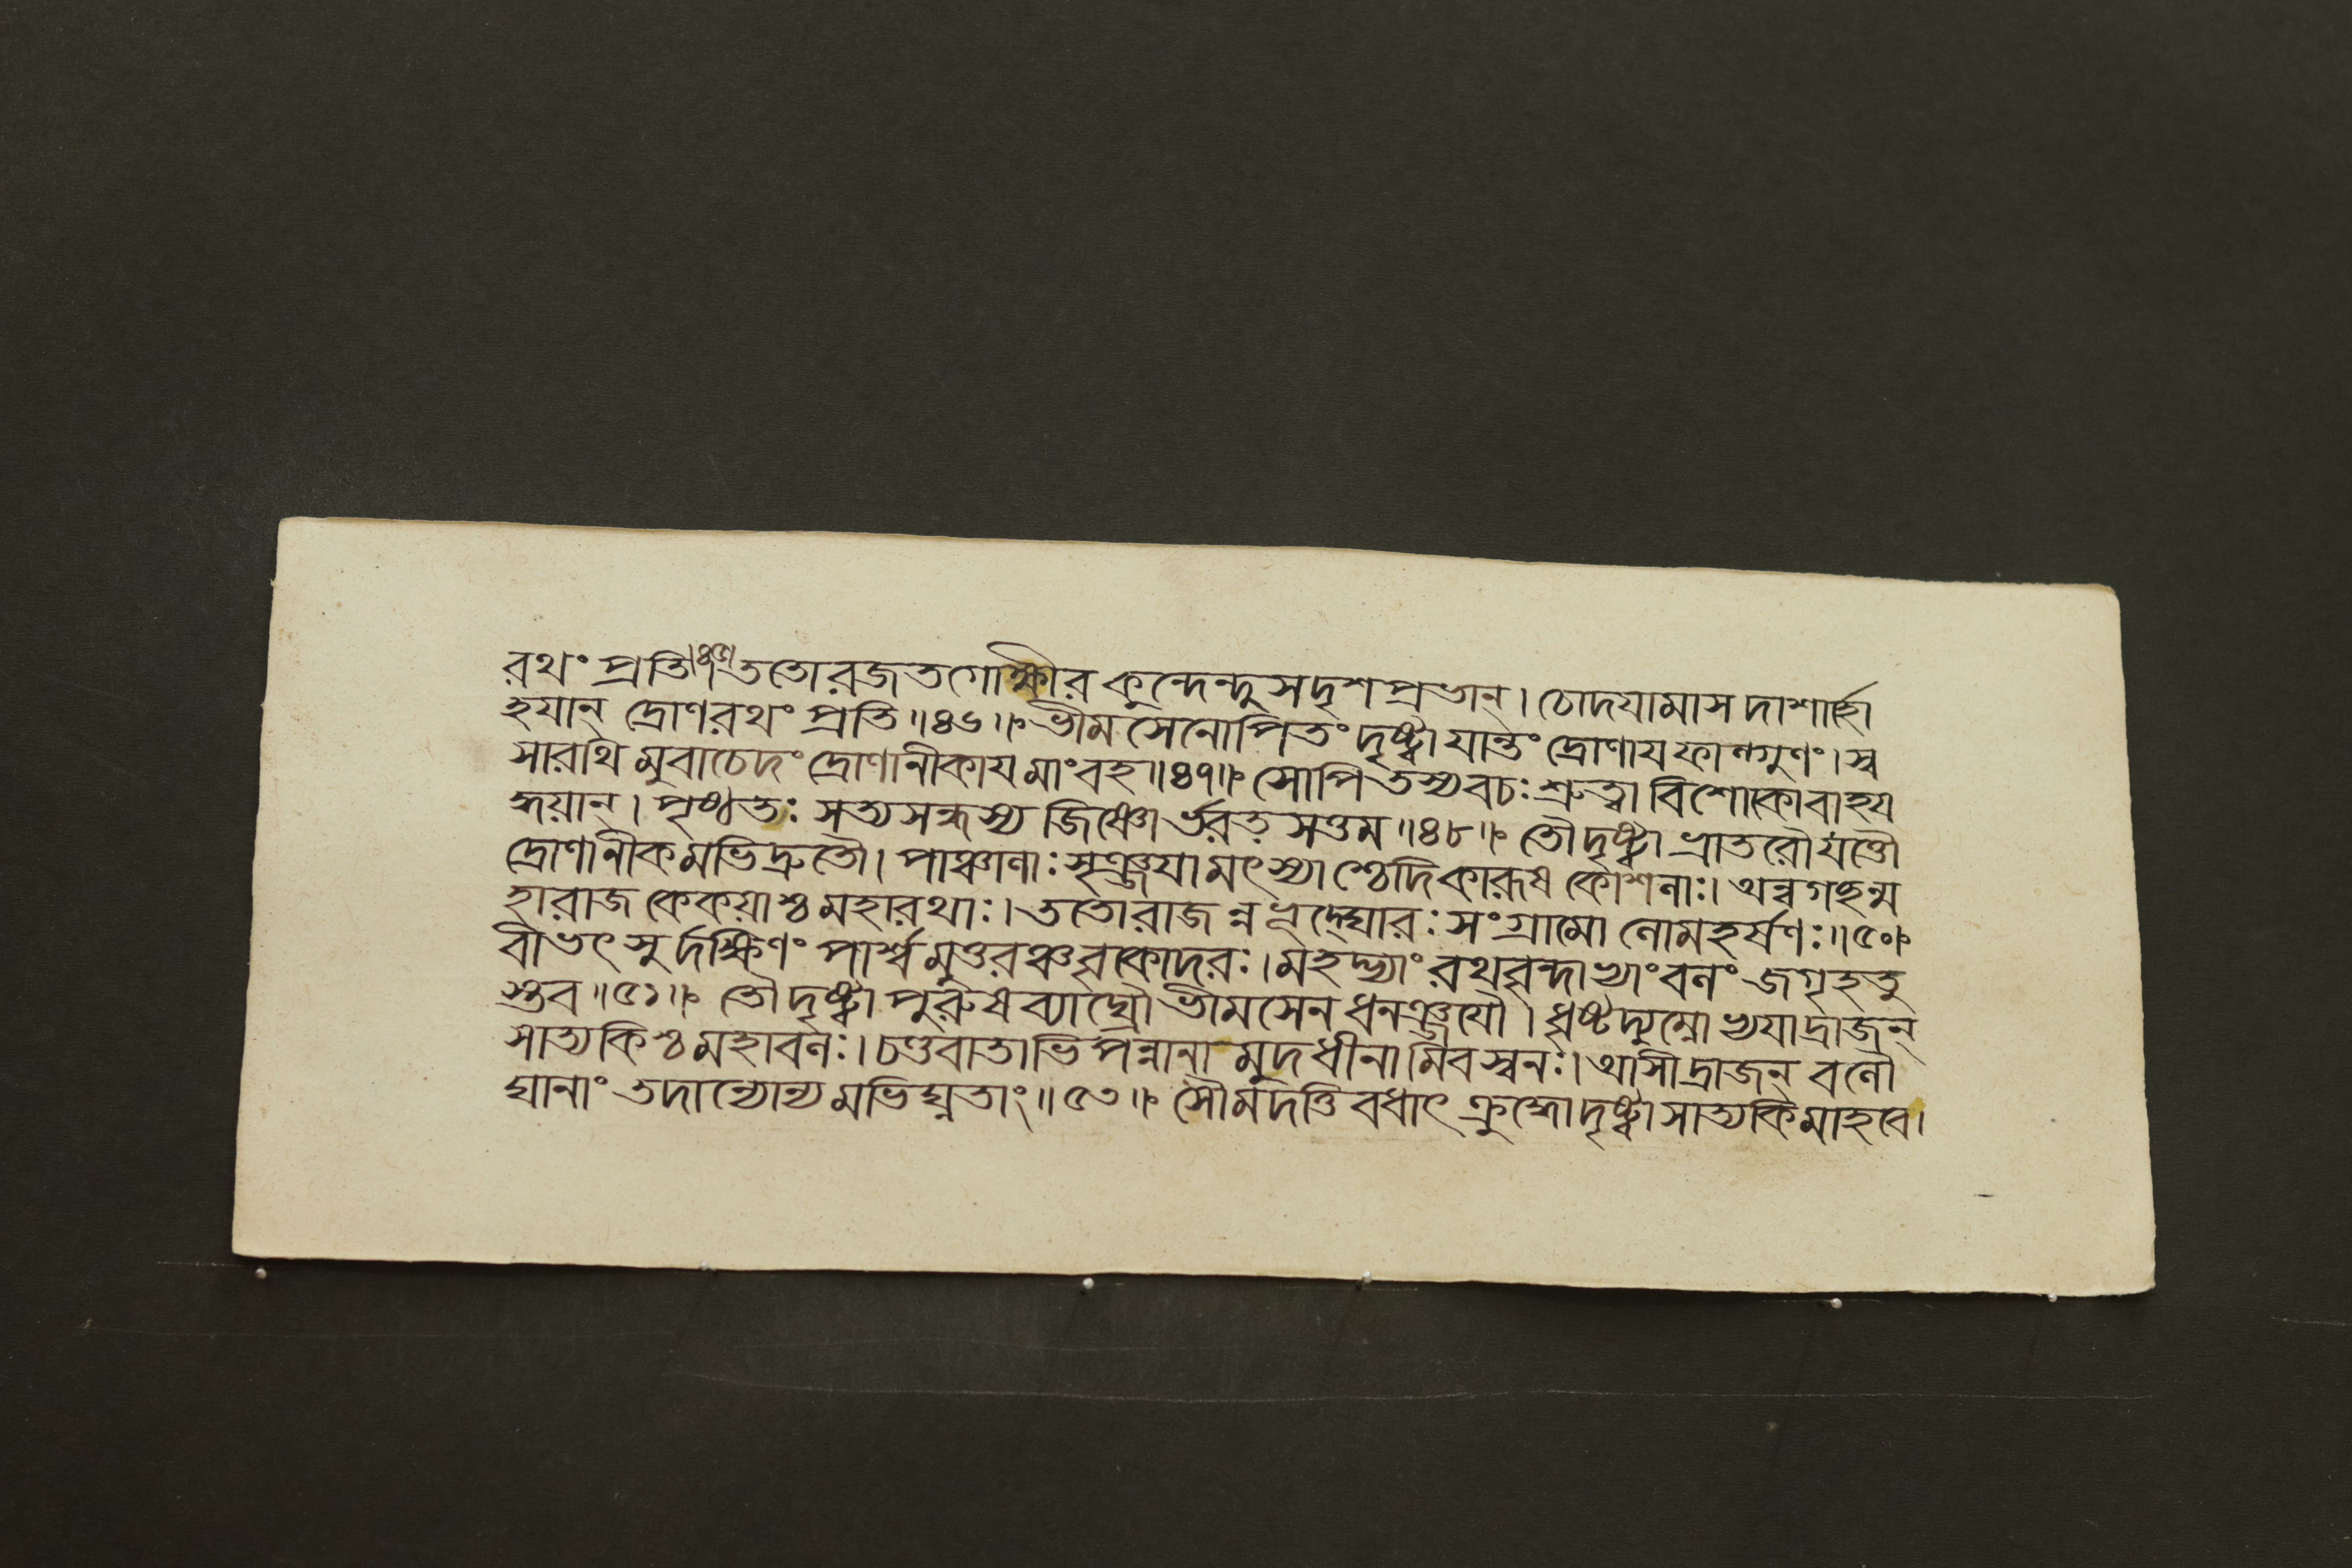 রথং প্রতি॥৪৫॥ ততোরজতগোক্ষীর কুন্দেন্দুসদৃশপ্রভান্। চোদযামাস দাশার্হো
হযান্ দ্রোণরথং প্রতি॥৪৬॥ ভীমসেনোপিতং দৃষ্ট্বা যান্তং দ্রোণাযফাল্গুণং। স্ব
সারথি মুবাচেদং দ্রোণানীকায মাংবহ॥৪৭॥ সোপি তস্যবচঃ শ্রুত্বা বিশোকোবাহয
দ্ধয়ান্। পৃষ্ঠতঃ সত্যসন্ধস্য জিষ্ণো র্ভরত সত্তম॥৪৮॥ তৌদৃষ্ট্বা ভ্রাতরৌযত্তৌ
দ্রোণানীকমভিদ্রুতৌ। পাঞ্চালাঃ সৃঞ্জযামৎস্যাশ্চেদিকারূষ কোশলাঃ। অন্বগছন্ম
হারাজ কেকয়াশ্চ মহারথাঃ। ততোরাজ ন্নভূদ্ঘোরঃ সংগ্রামো লোমহর্ষণঃ॥৫০॥
বীভৎসুর্দক্ষিণং পার্শ্ব মুত্তরঞ্চবৃকোদরঃ। মহদ্ভ্যাং রথবৃন্দাভ্যাং বলং জগৃহতু
স্তব॥৫১॥ তৌদৃষ্ট্বা পুরুষব্যাঘ্রৌ ভীমসেন ধনঞ্জযৌ। ধৃষ্টদ্যুম্নো ভ্যযাদ্রাজন্
সাত্যকিশ্চ মহাবলঃ। চণ্ডবাতাভিপন্নানা মুদধীনামিবস্বনঃ। আসীদ্রাজন্ বলৌ
ঘানাং তদান্যোন্য মভিঘ্নতাং॥৫৩॥ সৌমদত্তি বধাৎ ক্রুদ্ধোদৃষ্ট্বা সাত্যকিমাহবে।